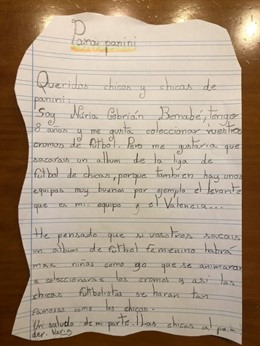 Para panini
Queridos chicos y chicas de
panini:
Soy María Cebrián Bernabé, tengo
8 años y me gusta coleccionar vuestros
cromos de futbol. Pero me gustaria que
sacarais un album de la liga de
futbol de chicas, porque tambien hay unos
equipos muy buenos por ejemplo el levante
que es mi equipo y el Valencia...
He pensado que si vosotros sacais
un album de futbol femenino habrá
mas niñas como yo que se animaran
a coleccionarse los cromos y asi las
chicas futbolistas se haran tan
famosas como los chicos.
Un saludo de mi parte. Las chicas al po
der.